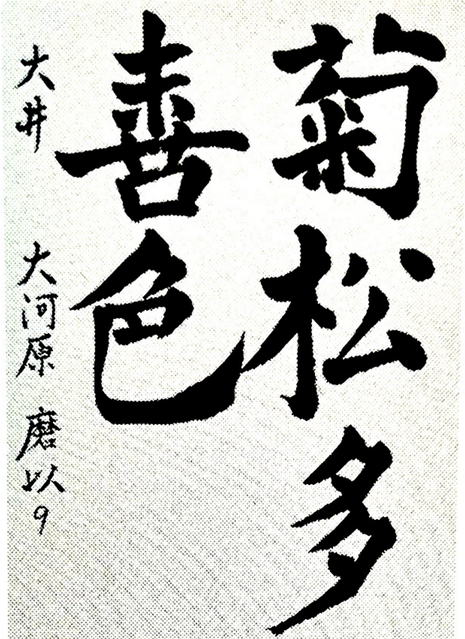 菊松多
喜色
大井 大河原 磨以9